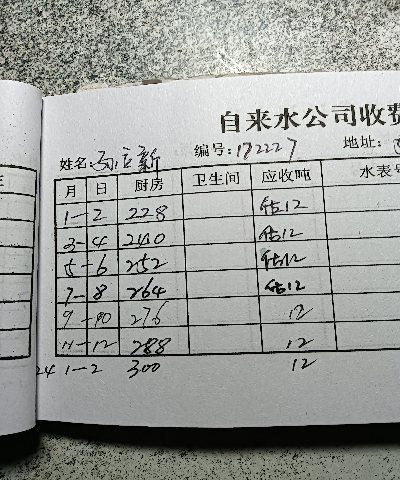 自来水公司收费
姓名: 编号: 172227 地址:
月 日 厨房 卫生间 应收吨 水表号
1-2 228 估12
3-4 240 估12
5-6 252 估12
7-8 264 估12
9-10 276 12
11-12 288 12
24 1-2 300 12